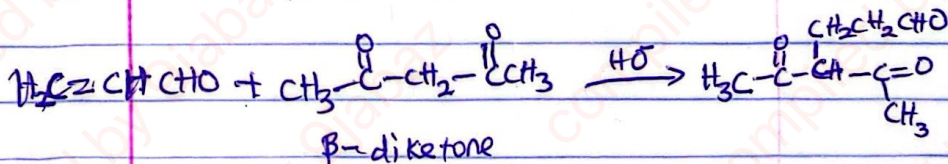 H₂C=CHCHO + CH₃-C(=O)-CH₂-C(=O)CH₃ —HO⁻→ H₃C-C(=O)-CH(CH₂CH₂CHO)-C(=O)CH₃
β-diketone